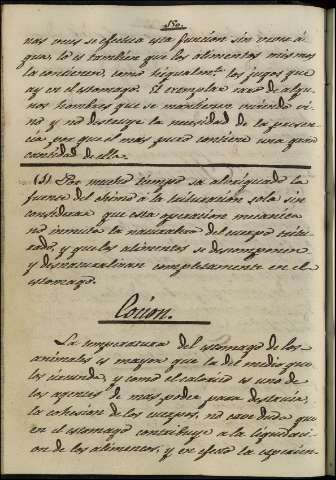 150.
nas veces se efectua esta funcion sin una
gua, lo es tambien que los alimentos mismos
la contienen, como igualmte. los jugos que
ay en el estomago. El exemplar raro de algu
nos hombres que se mantienen viviendo vi
no y no destruye la necesidad de la presen
cia por que el mas puro contiene una gran
cantidad de ella.
(1) Por mucho tiempo se a atribuido la
fuerza del chimo a la trituracion sola sin
considerar que esta operacion mecanica
no inmuta la naturaleza del cuerpo tritu
rado, y que los alimentos se descomponen
y desnaturalizan completamente en el
estomago.
Cocion.
La temperatura del estomago de los
animales es mayor que la del medio que
los circunda, y como el calorico es uno de
los agentes de mas poder para destruir
la cohesion de los cuerpos, no cave duda que
en el estomago contribuye a la liquidaci
on de los alimentos, y en efecto la esperien